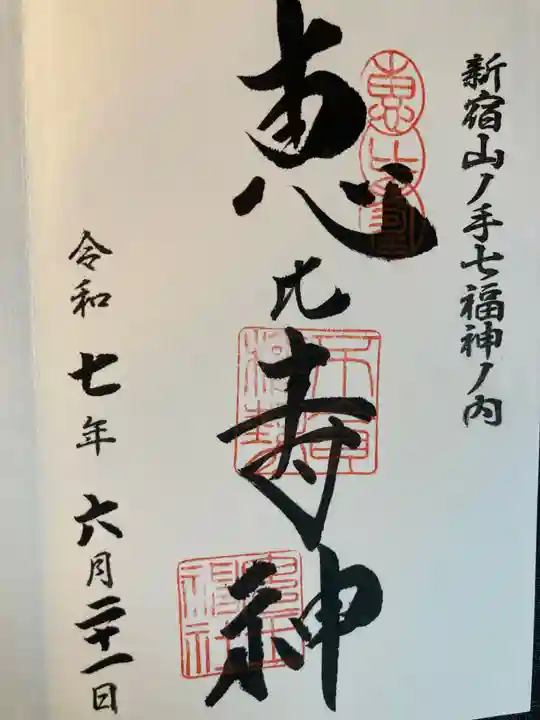 新宿山ノ手七福神ノ内
恵比寿神
恵比寿
令和七年六月二十一日